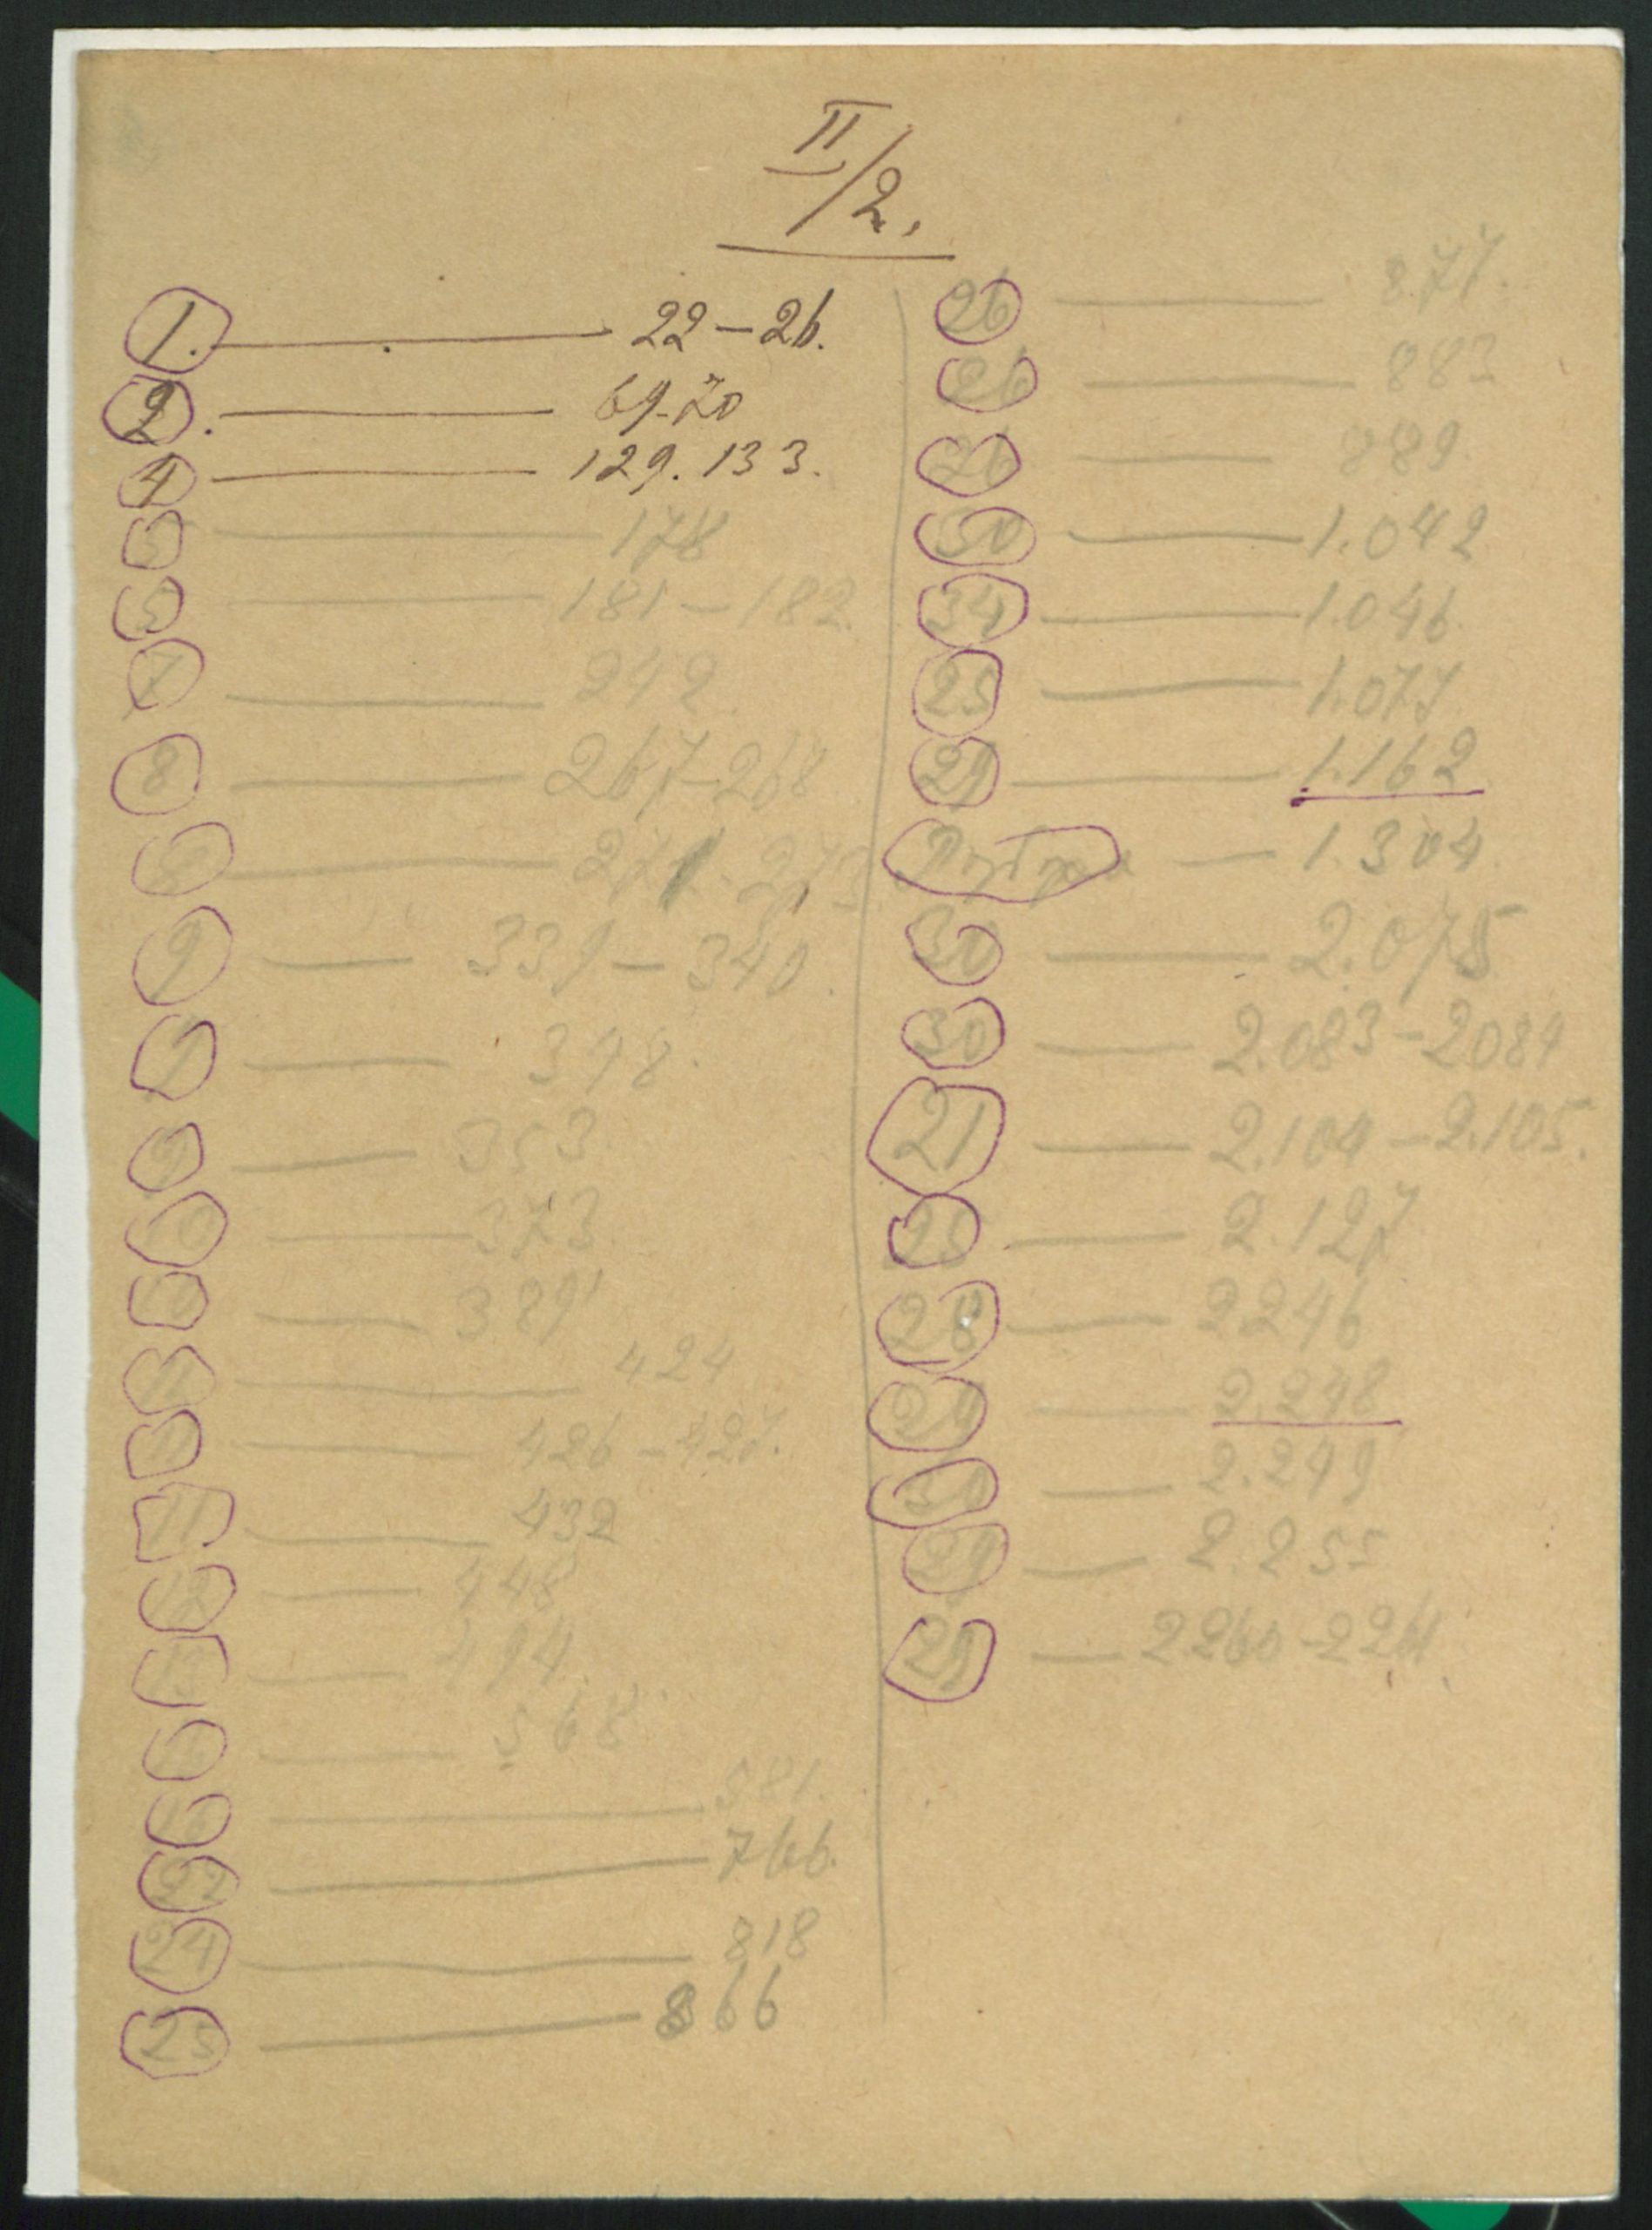 II/2.
1. — 22–26.
2. — 69-70
4 — 129. 133.
5 — 178
5 — 181–182.
7 — 242.
8 — 267-268
271-273
9 — 339–340.
9 — 348.
9 — 353.
373.
389
424
426–427.
11 — 432
12 — 448
13 — 494
568
581.
22 — 766.
24 — 818
25 — 866
26 — 877.
26 — 883
26 — 889.
30 — 1.042
34 — 1.046.
25 — 1.077
29 — 1.162
— 1.304.
30 — 2.075
30 — 2.083-2084
21 — 2.104–2.105.
25 — 2.127
28 — 2246
29 — 2.248
30 — 2.249
29 — 2.255
29 — 2260-2261